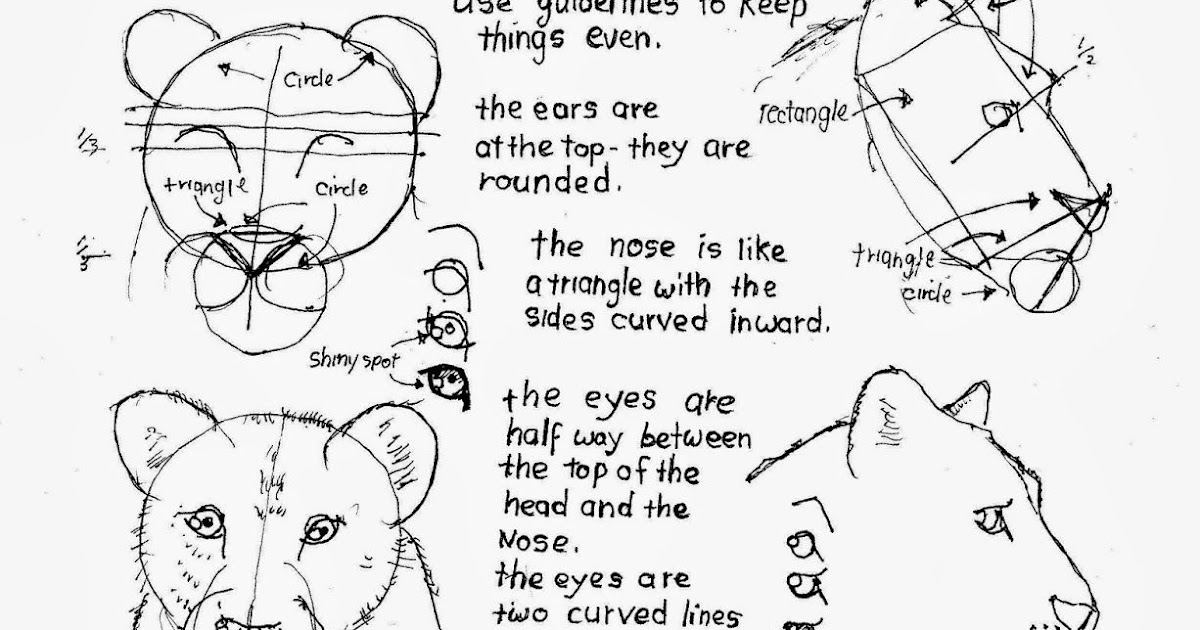 use guidelines to keep
things even.
circle
the ears are
at the top - they are
rounded.
1/3
triangle
circle
1/3
rectangle
1/2
triangle
circle
the nose is like
a triangle with the
sides curved inward.
shiny spot
the eyes are
half way between
the top of the
head and the
Nose.
the eyes are
two curved lines